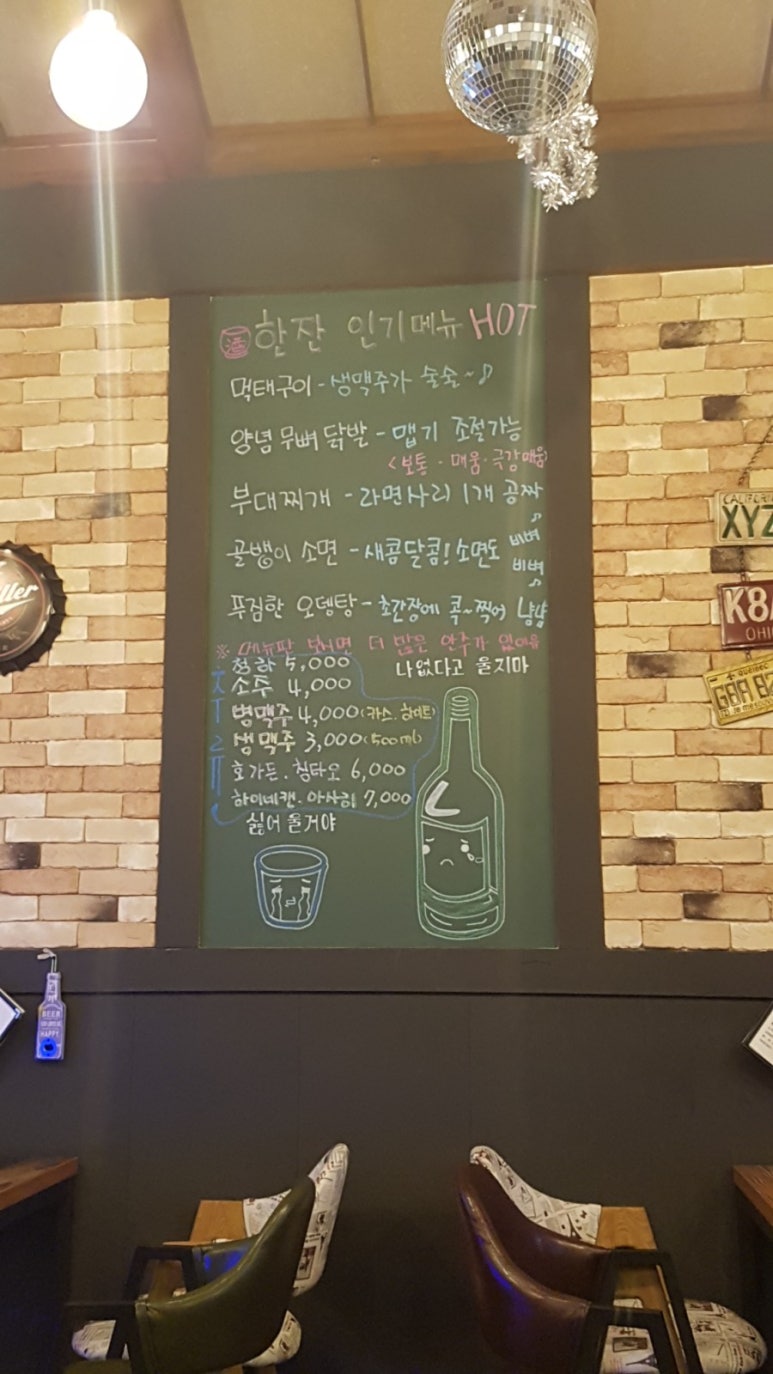 酒 한잔 인기메뉴 HOT
먹태구이 - 생맥주가 술술~♪
양념 무뼈 닭발 - 맵기 조절가능
<보통 · 매움 · 극강매움>
부대찌개 - 라면사리 1개 공짜♪
골뱅이 소면 - 새콤달콤! 소면도 비벼
비벼♪
푸짐한 오뎅탕 - 초간장에 콕~찍어 냠냠
※ 메뉴판 보시면 더 많은 안주가 있어욤
청하 5,000
나 없다고 울지마
소주 4,000
병맥주 4,000 (카스. 하이트)
생맥주 3,000 (500ml)
호가든. 칭타오 6,000
하이네캔. 아사히 7,000
주류
싫어 울거야
Miller
CALIFORNIA
XYZ
K8
OHIO
QUEBEC
BEER
HAPPY